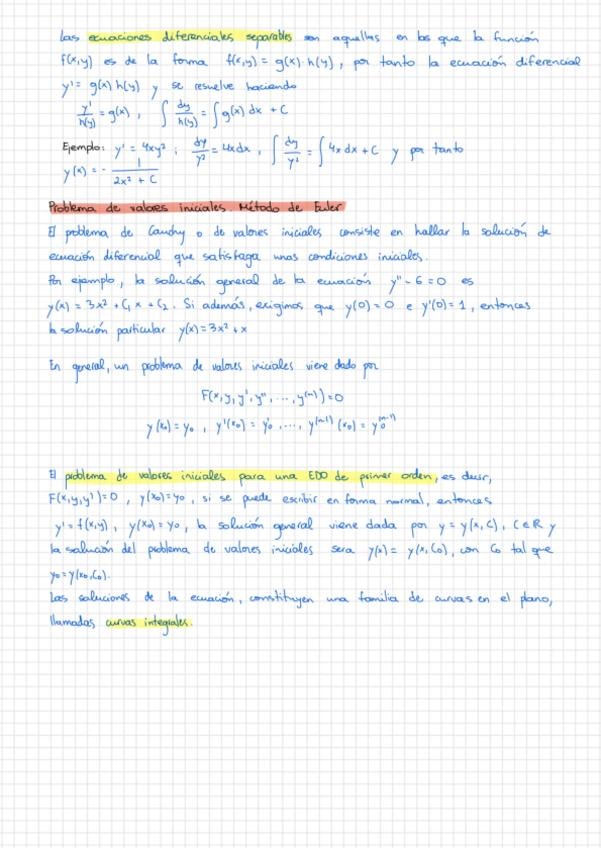 Las ecuaciones diferenciales separables son aquellas en las que la función
f(x,y) es de la forma f(x,y) = g(x)·h(y), por tanto la ecuación diferencial
y' = g(x) h(y) y se resuelve haciendo
y'/h(y) = g(x), ∫ dy/h(y) = ∫ g(x) dx + C
Ejemplo: y' = 4xy²; dy/y² = 4xdx, ∫ dy/y² = ∫ 4x dx + C y por tanto
y(x) = - 1/(2x² + C)
Problema de valores iniciales. Método de Euler
El problema de Cauchy o de valores iniciales consiste en hallar la solución de
ecuación diferencial que satisfaga unas condiciones iniciales.
Por ejemplo, la solución general de la ecuación y'' - 6 = 0 es
y(x) = 3x² + C₁ x + C₂. Si además, exigimos que y(0) = 0 e y'(0) = 1, entonces
la solución particular y(x) = 3x² + x
En general, un problema de valores iniciales viene dado por
F(x, y, y', y'', ..., y⁽ⁿ⁾) = 0
y(x₀) = y₀, y'(x₀) = y'₀, ..., y⁽ⁿ⁻¹⁾(x₀) = y₀⁽ⁿ⁻¹⁾
El problema de valores iniciales para una EDO de primer orden, es decir,
F(x,y,y') = 0, y(x₀) = y₀, si se puede escribir en forma normal, entonces
y' = f(x,y), y(x₀) = y₀, la solución general viene dada por y = y(x,C), C∈R y
la solución del problema de valores iniciales sera y(x) = y(x,C₀), con C₀ tal que
y₀ = y(x₀,C₀).
Las soluciones de la ecuación, constituyen una familia de curvas en el plano,
llamadas curvas integrales.